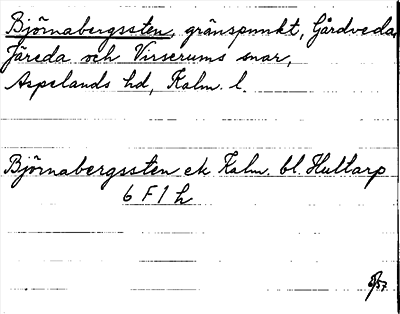 Björnabergssten, gränspunkt, Gårdveda,
Järeda och Virserums snar,
Aspelands hd, Kalm. l.
Björnabergssten ek Kalm. bl. Hultarp
6 F 1 h